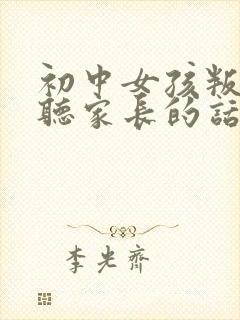 初中女孩叛
聽家長的話
李光齊